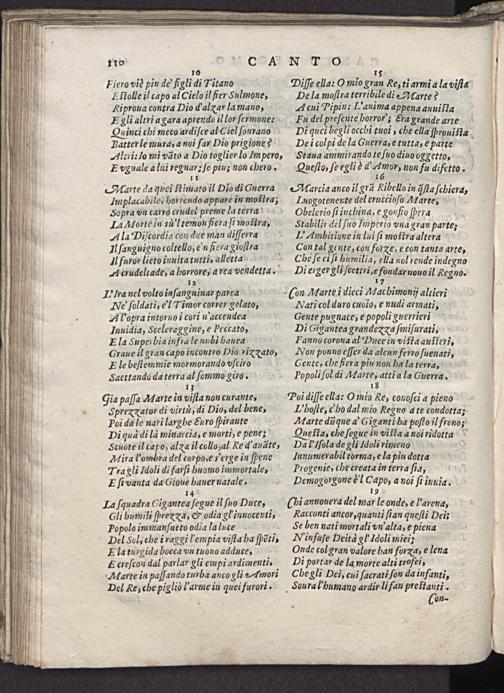 110
CANTO
10
Fiero viè piu de' figli di Titano
Estolle il capo al Cielo il fier Sulmone,
Riproua contra Dio d'alzar la mano,
E gli altri a gara aprendo il lor sermone:
Quinci chi meco ardisce al Ciel sourano
Batter le mura, a noi far Dio prigione?
Altri: Io mi vāto a Dio toglier lo Impero,
E vguale a lui regnar; se piu; non chero.
11
Marte da queci stimato il Dio di Guerra
Implacabile, horrendo appare in mostra;
Sopra vn carro crudel preme la terra
La Morte in sù'l temon fiera si mostra,
A la Discordia con due man disserra
Il sanguigno coltello, e'n fiera giostra
Il furor lieto inuita tutti, alletta
A crudeltade, a horrore, a rea vendetta.
12
L'Ira nel volto insanguinar parea
Ne' soldati, e'l Timor correr gelato,
A l'opra intorno i cori n'accendea
Inuidia, Sceleraggine, e Peccato,
E la Superbia infra le nubi hauea
Graue il gran capo incontro Dio rizzato,
E le bestemmie mormorando vsciro
Saettando da terra al sommo giro.
13
Gia passa Marte in vista non curante,
Sprezzator di virtù, di Dio, del bene,
Poi da le nari larghe Euro spirante
Di quà di là minaccia, e morti, e pene;
Scuote il capo, alza il collo, al Re d'auāte,
Mira l'ombra del corpo, e s'erge in spene
Tra gli Idoli di farsi huomo immortale,
E si vanta da Gioue hauer natale.
14
La squadra Gigantea segue il suo Duce,
Gli humili sprezza, & odia gl'innocenti,
Popolo immansueto odia la luce
Del Sol, che i raggi l'empia vista ha spēti,
E la turgida bocca vn tuono adduce,
E crescon dal parlar gli empi ardimenti.
Marte in passando turba anco gli Amori
Del Re, che pigliò l'arme in quei furori.
15
Disse ella: O mio gran Re, ti armi a la vista
De la mostra terribile di Marte?
A cui Pipin: L'anima appena auuista
Fu del presente horror; Era grande arte
Di queci begli occhi tuoi, che ella sprouista
De i colpi de la Guerra, e tutta, e parte
Staua ammirando te suo diuo oggetto,
Questo, se egli è d'Amor, non fu difetto.
16
Marcia anco il grā Ribello in q̄sta schiera,
Luogotenente del cruccioso Marte,
Obelerio si inchina, e gonfio spera
Stabilir del suo Imperio vna gran parte;
L'Ambitione in lui si mostra altera
Con tal gente, con forze, e con tanta arte,
Che se ei si humilia, ella nol rende indegno
Di erger gli scettri, e fondar nono il Regno.
17
Con Marte i dieci Machimonij altieri
Nati col duro cuoio, e nudi armati,
Gente pugnace, e popoli guerrieri
Di Gigantea grandezza smisurati,
Fanno corona al Duce in vista austeri,
Non ponno esser da alcun ferro suenati,
Gente, che fiera piu non ha la terra,
Popoli sol di Marte, atti a la Guerra.
18
Poi disse ella: O mio Re, conosci a pieno
L'hoste, c'ho dal mio Regno a te condotta;
Marte dūque a' Giganti ha posto il freno;
Questa, che segue in vista a noi ridotta
Da l'Isola de gli Idoli rimeno
Innumerabil torma, e la piu dotta
Progenie, che creata in terra sia,
Demogorgone è'l Capo, a noi si inuia.
19
Chi annouera del mar le onde, e l'arena,
Racconti ancor, quanti sian questi Dei:
Se ben nati mortali vn'alta, e piena
N'infuse Deità gl'Idoli miei;
Onde col gran valore han forza, e lena
Di portar de la morte alti trofei,
Che gli Dei, cui sacrati son da infanti,
Soura l'humano ardir li fan prestanti.
Con-